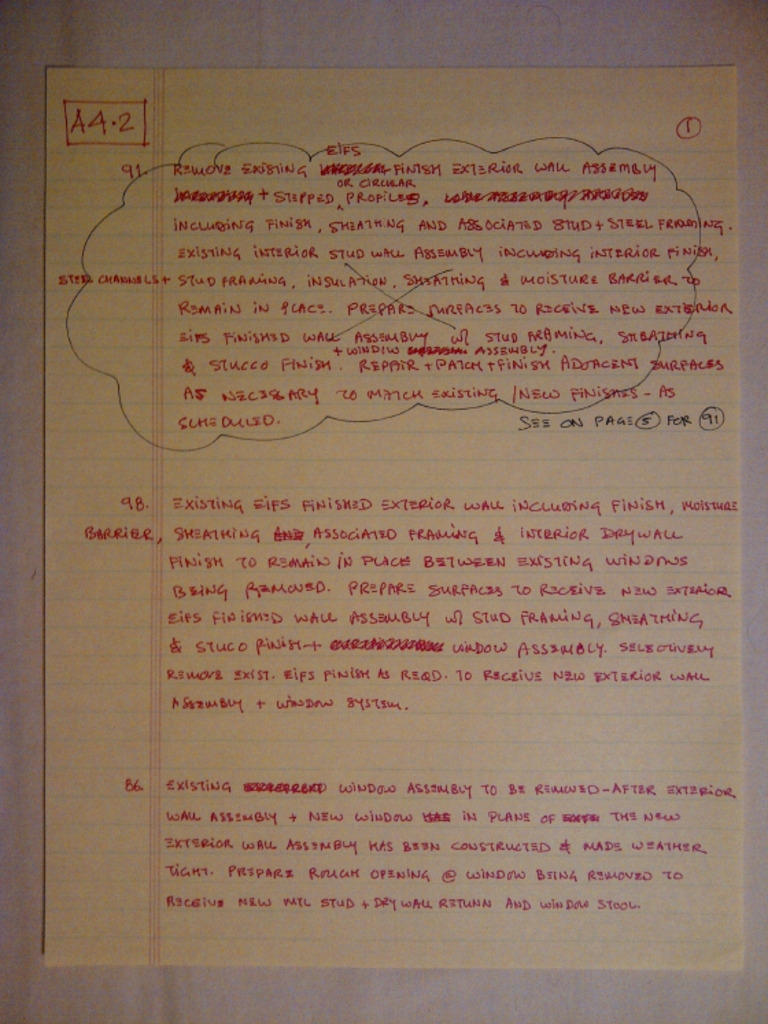 A4.2
1
EIFS
91. REMOVE EXISTING + FINISH EXTERIOR WALL ASSEMBLY
OR CIRCULAR
+ STEPPED PROFILES,
INCLUDING FINISH, SHEATHING AND ASSOCIATED STUD + STEEL FRAMING.
EXISTING INTERIOR STUD WALL ASSEMBLY INCLUDING INTERIOR FINISH,
STEEL CHANNELS + STUD FRAMING, INSULATION, SHEATHING & MOISTURE BARRIER TO
REMAIN IN PLACE. PREPARE SURFACES TO RECEIVE NEW EXTERIOR
EIFS FINISHED WALL ASSEMBLY W/ STUD FRAMING, SHEATHING
+ WINDOW ASSEMBLY.
& STUCCO FINISH. REPAIR + PATCH + FINISH ADJACENT SURFACES
AS NECESSARY TO MATCH EXISTING / NEW FINISHES - AS
SCHEDULED.
SEE ON PAGE 5 FOR 91
98. EXISTING EIFS FINISHED EXTERIOR WALL INCLUDING FINISH, MOISTURE
BARRIER, SHEATHING AND, ASSOCIATED FRAMING & INTERIOR DRYWALL
FINISH TO REMAIN IN PLACE BETWEEN EXISTING WINDOWS
BEING REMOVED. PREPARE SURFACES TO RECEIVE NEW EXTERIOR
EIFS FINISHED WALL ASSEMBLY W/ STUD FRAMING, SHEATHING
& STUCO FINISH + WINDOW ASSEMBLY. SELECTIVELY
REMOVE EXIST. EIFS FINISH AS REQD. TO RECEIVE NEW EXTERIOR WALL
ASSEMBLY + WINDOW SYSTEM.
86. EXISTING WINDOW ASSEMBLY TO BE REMOVED - AFTER EXTERIOR
WALL ASSEMBLY + NEW WINDOW HAS IN PLANE OF THE NEW
EXTERIOR WALL ASSEMBLY HAS BEEN CONSTRUCTED & MADE WEATHER
TIGHT. PREPARE ROUGH OPENING @ WINDOW BEING REMOVED TO
RECEIVE NEW MTL STUD + DRYWALL RETURN AND WINDOW STOOL.